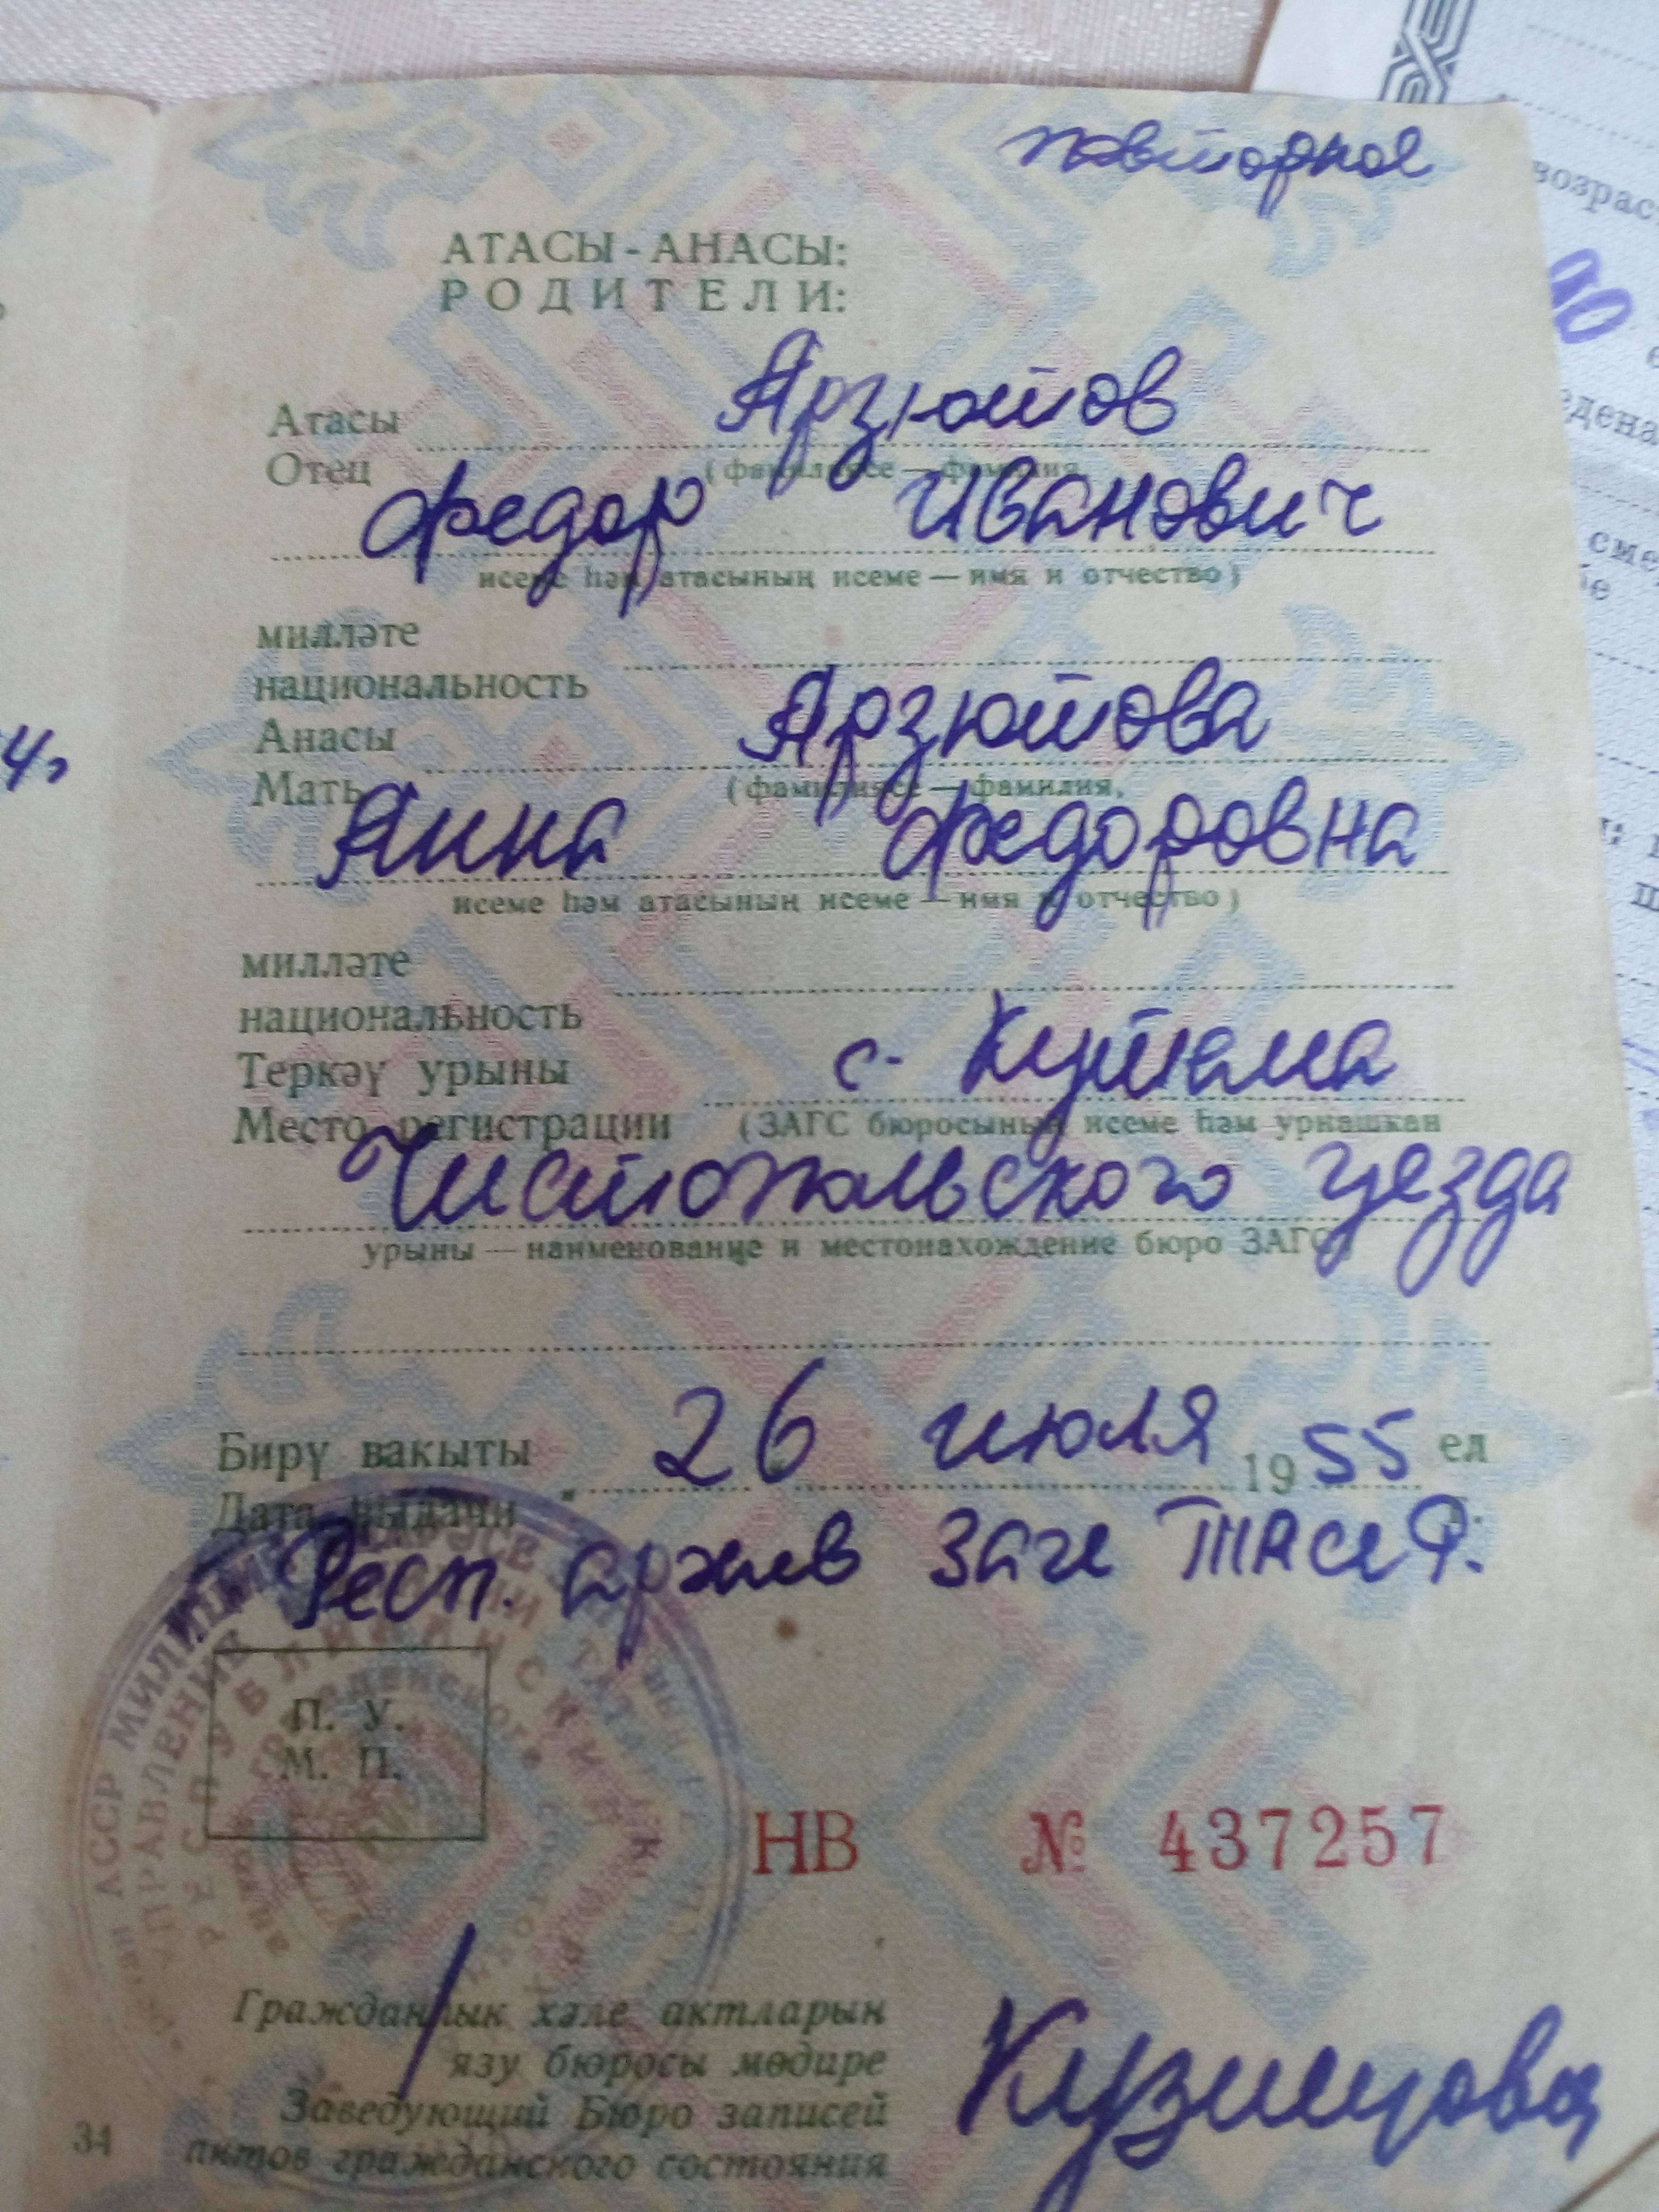 повторное
АТАСЫ - АНАСЫ:
РОДИТЕЛИ:
Атасы Арзютов
Отец (фамилиясе — фамилия,
Федор Иванович
исеме һәм атасының исеме — имя и отчество)
милләте
национальность
Анасы Арзютова
Мать (фамилиясе — фамилия,
Анна Федоровна
исеме һәм атасының исеме — имя и отчество)
милләте
национальность
Теркәү урыны с. Кутема
Место регистрации (ЗАГС бюросының исеме һәм урнашкан
Чистопольского уезда
урыны — наименование и местонахождение бюро ЗАГС)
Бирү вакыты 26 июля 1955 ел
Дата выдачи г.
Респ. архив Загс ТАССР.
П. У.
М. П.
НВ № 437257
Граждаңлык хәле актларын
язу бюросы мөдире
Заведующий Бюро записей
актов гражданского состояния
Кузнецова
34
4,
возраст
смер
АССР МИЛИЦИЯ
УПРАВЛЕНИЕ
РЕСПУБЛИКАНСКИЙ